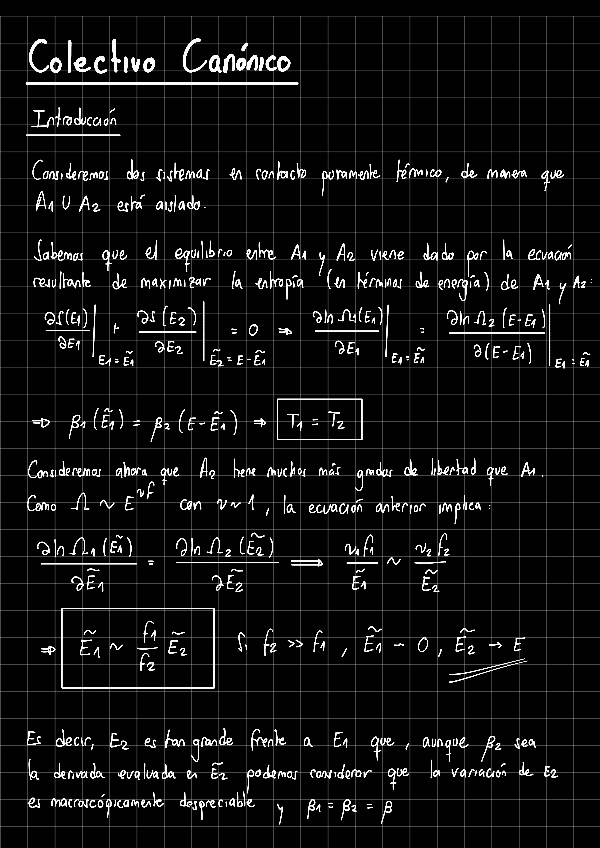 Colectivo Canónico
Introducción
Consideremos dos sistemas en contacto puramente térmico, de manera que
A₁ ∪ A₂ está aislado.
Sabemos que el equilibrio entre A₁ y A₂ viene dado por la ecuación
resultante de maximizar la entropía (en términos de energía) de A₁ y A₂:
∂S(E₁)/∂E₁ |_{E₁=Ẽ₁} + ∂S(E₂)/∂E₂ |_{Ẽ₂=E-Ẽ₁} = 0 ⇒ ∂ln Ω₁(E₁)/∂E₁ |_{E₁=Ẽ₁} = ∂ln Ω₂(E-E₁)/∂(E-E₁) |_{E₁=Ẽ₁}
⇒ β₁(Ẽ₁) = β₂(E-Ẽ₁) ⇒ T₁ = T₂
Consideremos ahora que A₂ tiene muchos más grados de libertad que A₁.
Como Ω ~ E^{νf} con ν~1, la ecuación anterior implica:
∂ln Ω₁(Ẽ₁)/∂Ẽ₁ = ∂ln Ω₂(Ẽ₂)/∂Ẽ₂ ⟹ ν₁f₁/Ẽ₁ ~ ν₂f₂/Ẽ₂
⇒ Ẽ₁ ~ f₁/f₂ Ẽ₂ Si f₂ >> f₁, Ẽ₁ → 0, Ẽ₂ → E
Es decir, E₂ es tan grande frente a E₁ que, aunque β₂ sea
la derivada evaluada en Ẽ₂ podemos considerar que la variación de E₂
es macroscópicamente despreciable y β₁ = β₂ = β